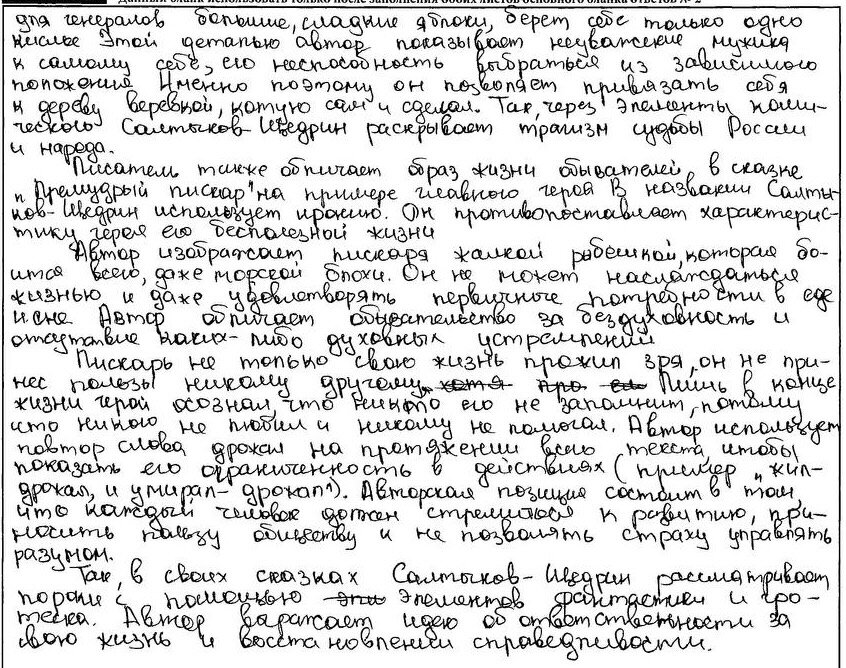 Данный бланк использовать только после заполнения обоих листов основного бланка ответов № 2
для генералов большие, сладкие яблоки, берет себе только одно
кислое Этой деталью автор показывает неуважение мужика
к самому себе, его неспособность выбраться из зависимого
положения Именно поэтому он позволяет привязать себя
к дереву веревкой, котую сам и сделал. Так, через элементы коми-
ческого Салтыков-Щедрин раскрывает трагизм судьбы России
и народа.
Писатель также обличает образ жизни обывателей в сказке
„Премудрый пискар" на примере главного героя В названии Салты-
ков-Щедрин использует иронию. Он противопоставляет характерис-
тику героя его бесполезной жизни
Автор изображает пискаря жалкой рыбешкой, которая бо-
ится всего, даже морской блохи. Он не может наслаждаться
жизнью и даже удовлетворять первичные потребности в еде
и сне Автор обличает обывательство за бездуховность и
отсутствие каких-либо духовных устремлений
Пискарь не только свою жизнь прожил зря, он не при-
нес пользы никому другому, хотя про Лишь в конце
жизни герой осознал, что никто его не запомнит, потому
что никого не любил и никому не помогал. Автор использует
повтор слова дрожал на протяжении всего текста, чтобы
показать его ограниченность в действиях (пример „жил-
дрожал, и умирал- дрожал"). Авторская позиция состоит в том,
что каждый человек должен стремиться к развитию, при-
носить пользу обществу и не позволять страху управлять
разумом.
Так, в своих сказках Салтыков-Щедрин рассматривает
пороки с помощью эти элементов фантастики и гро-
теска. Автор выражает идею об ответственности за
свою жизнь и восстановлении справедливости.